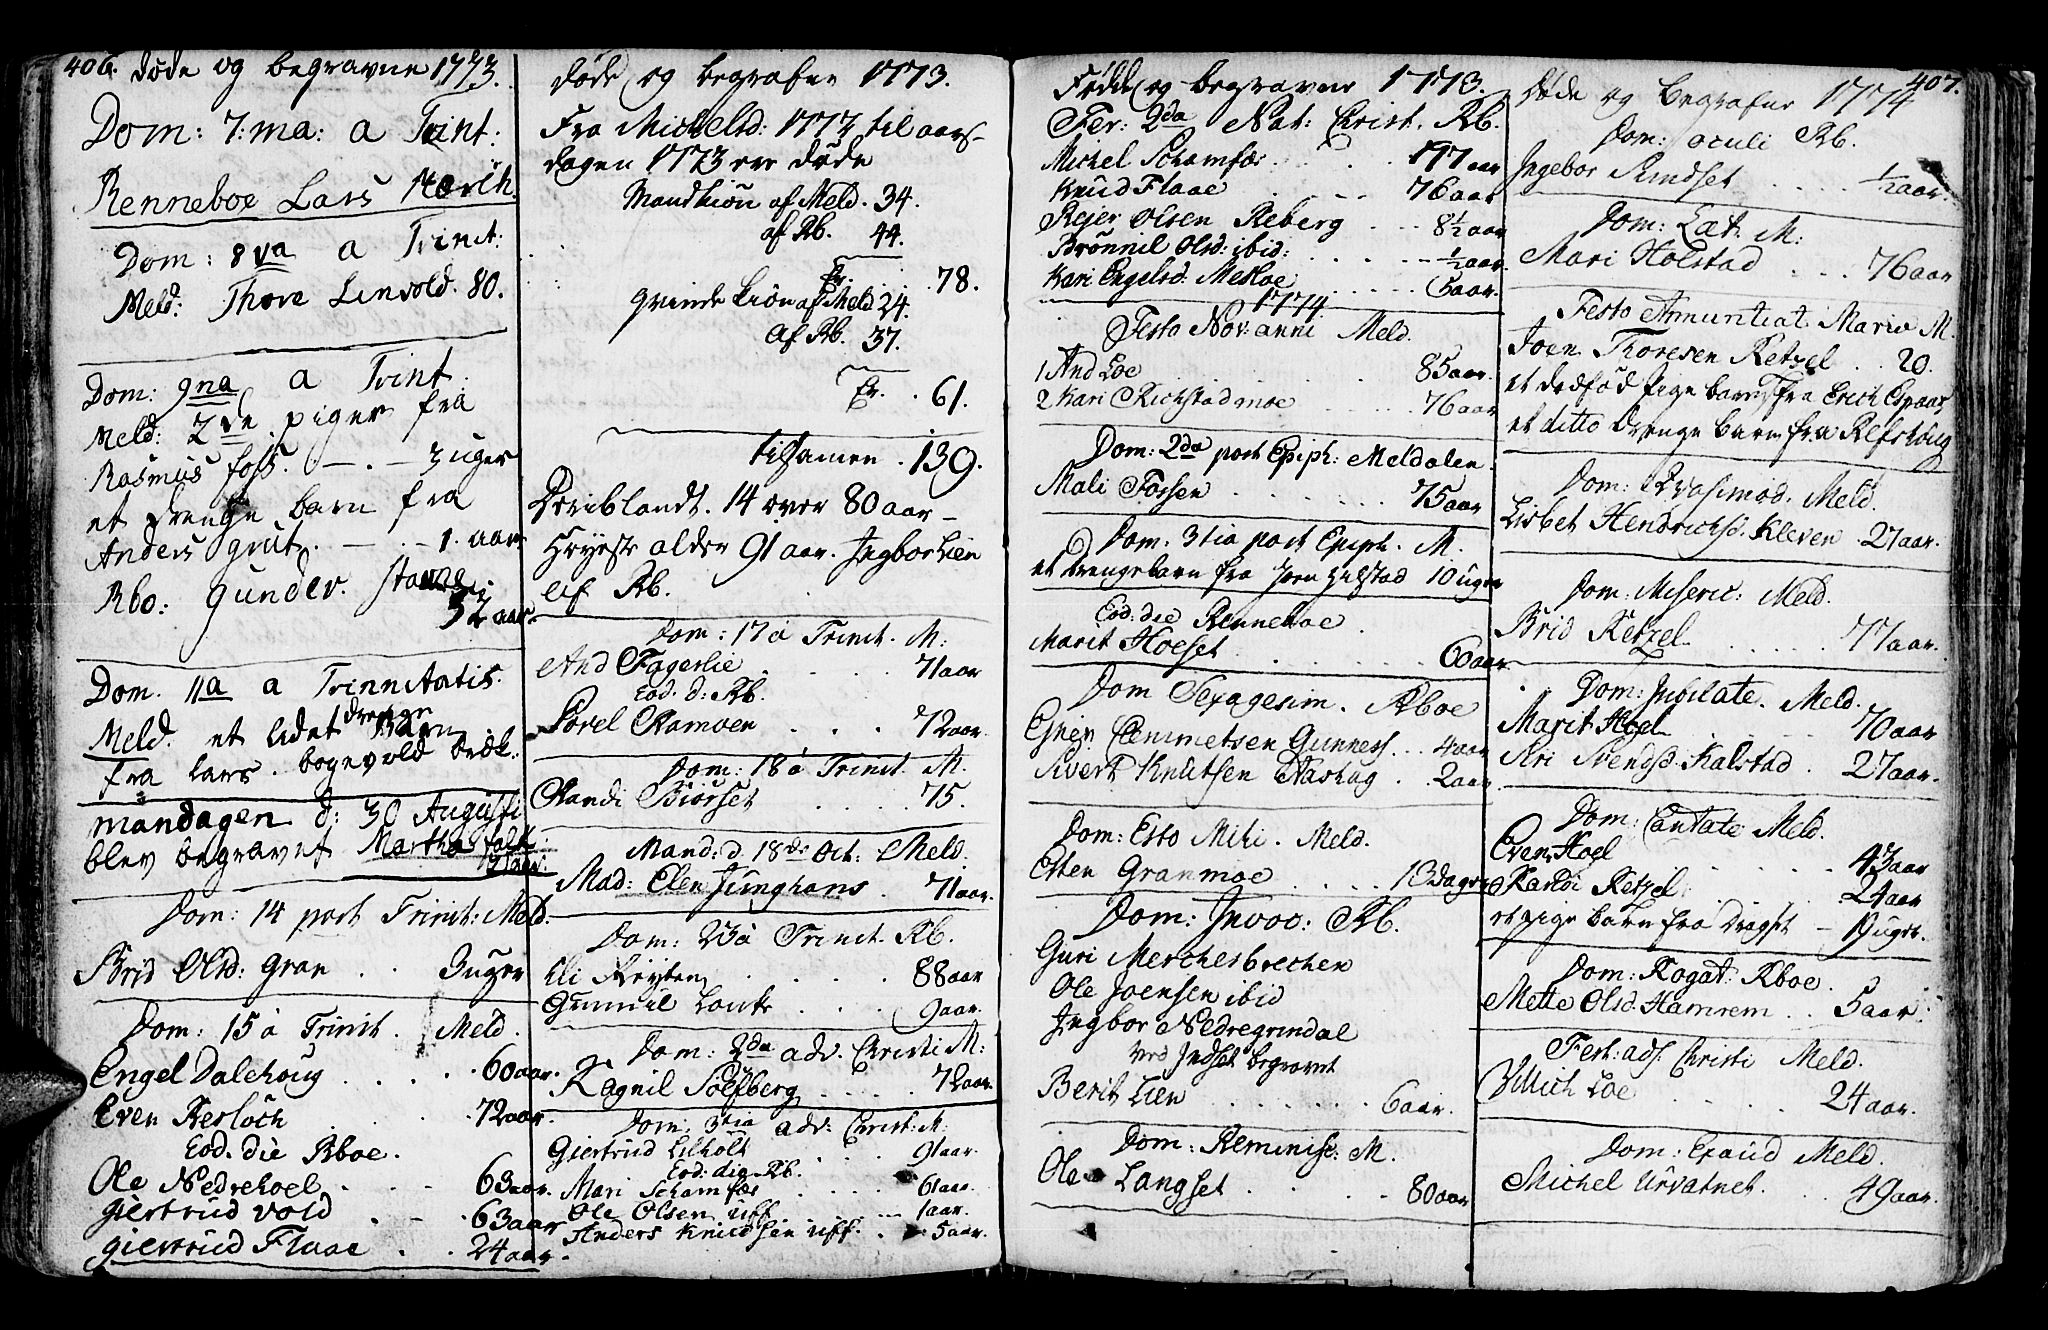 406. døde og begravne 1773.
Dom: 7:ma: a Trint:
Renneboe Lars
Dom: 8va a Trinit:
Meld: Thore Linvold. 80.
Dom: 9na a Trint.
Meld: 2de piger fra
Rasmus foss. — . — 3 uger
et drenge barn fra
Anders grut. — . — 1. aar
Rbo: gunder.
Dom. 11a a Trinnitatis.
Meld. et lidet drenge Barn
fra Lars . bogevold
mandagen d: 30 Augusti
blev begravet Martha
Dom: 14 post Trinit: Meld.
Brid Olsd: Gran . . 3uger
Dom: 15 a Trinit. Meld.
Engel Dalehoug . . . . 60aar.
Even Kerloch . . 72aar.
Eod. die Rboe.
Ole Nedrehoel . . . 63aar.
Giertrud vold . - . 63aar
Giertrud Flaae . . 24aar.
døde og begrafne 1773.
Fra Michelsd: 1772 til aars-
dagen 1773 ere døde
Mandkiøn af Meld. 34.
af Rb. 44.
Er . . 78.
qvinde kiøn af Meld 24.
af Rb. 37.
Er. . 61.
tilsamen . 139.
Deriblandt. 14 over 80 aar -
Høyeste alder 91 aar. Ingbor Lien
af Rb.
Dom: 17 a Trinit. M:
And Fagerlie . . . 71aar
Eod. d: Rb.
Sorel Ramoen . . . 72aar.
Dom: 18 a Trinit. M.
Randi Biørset . . . 75.
Mand: d. 18de Oct: Meld.
Mad: Elen Junghans . 71aar.
Dom: 23 a Trinit. Rb.
Eli Røyten . . . . 88aar
Gunnil Lonke . . . 9aar.
Dom: 2da adv. Christi M:
Ragnil Solsberg . . . . 72aar.
Dom: 3tia adv: Christ: M:
Giertrud Lilholt . . . 91aar.
Eod: die Rb.
Mari Schamfær . . . . 61aar
Ole Olsen uff . . . 1aar.
Anders Knudsen uff. . . 5aar.
Fødde og begravne 1773.
Fer: 2da Nat: Christ. Rb.
Michel Schamfær . . . 77 aar
Knud Flaae . . . 76aar
Rejer Olsen Reberg . . . 8½aar
Brønnil Olsd: ibid: . . . . ½aar.
Kari Engelsd: Meskoe . . . . . 6aar.
1774
Festo Nov: anni Meld.
1 And Loe . . . . . . 85aar.
2 Kari Rickstadmoe . . . . 76aar
Dom: 2da post Epiph: Meldalen.
Mali Fossen . . . . . . 75aar
Dom: 3tia post Epiph. M.
et drengebarn fra Joen Lilstad 10uger
Eod: die Renneboe .
Marit Hoeset . . . . . 60aar
Dom Sexagesim. Rboe
Ejner Emmetsen Gunness . . . 4aar
Sivert Knutsen Aashag . 2aar.
Dom: Esto Mihi. Meld.
Esten Granmoe . . . . 13dager
Dom: Invoc: Rb.
Guri Merchesbrechen
Ole Joensen ibid
Ingbor Nedregrindal
ved Indset begravet
Berit Lien . . . . . . 6aar.
Dom: Reminisc: M.
Ole Langset . . . . . 80aar
Døde og begrafne 1774 407.
Dom: oculi Rb.
Ingebor Rindset . . . . ½aar.
Dom: Læt. M:
Mari Holstad . . . 76aar
Festo Annuntiat. Mariæ M.
Joen Thoresen Ketzel . . 20.
et dødfød pige barn fra Erich Espaas
et ditto drenge barn fra Refshoug
Dom: Qvasimod. Meld.
Lisbet Hendrichsd. Kleven . 27aar.
Dom: Miseric: Meld.
Brid Ketzel . . . . . 77aar.
Dom: Jubilate. Meld.
Marit Hoel . . . . 70aar
Siri Svendsd. Kalstad . 27aar.
Dom: Cantate Meld.
Even Hoel . . . . . 43aar
Randi Ketzel . . . . 24aar
et pige barn fra Dragset — 19uger.
Dom: Rogat: Rboe.
Mette Olsd. Hamrem . . 5aar.
Fest: ads: Christi Meld.
Mich Loe . . . . . 24aar.
Dom: Exaud Meld.
Michel Urvatnet . . . . 49aar.